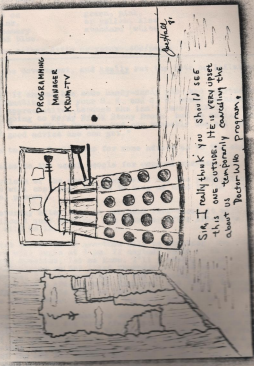 PROGRAMMING
MANAGER
KRUM-TV
Sir, I really think you should see
this one outside. He is very upset
about us temporarily cancelling the
Doctor Who program.